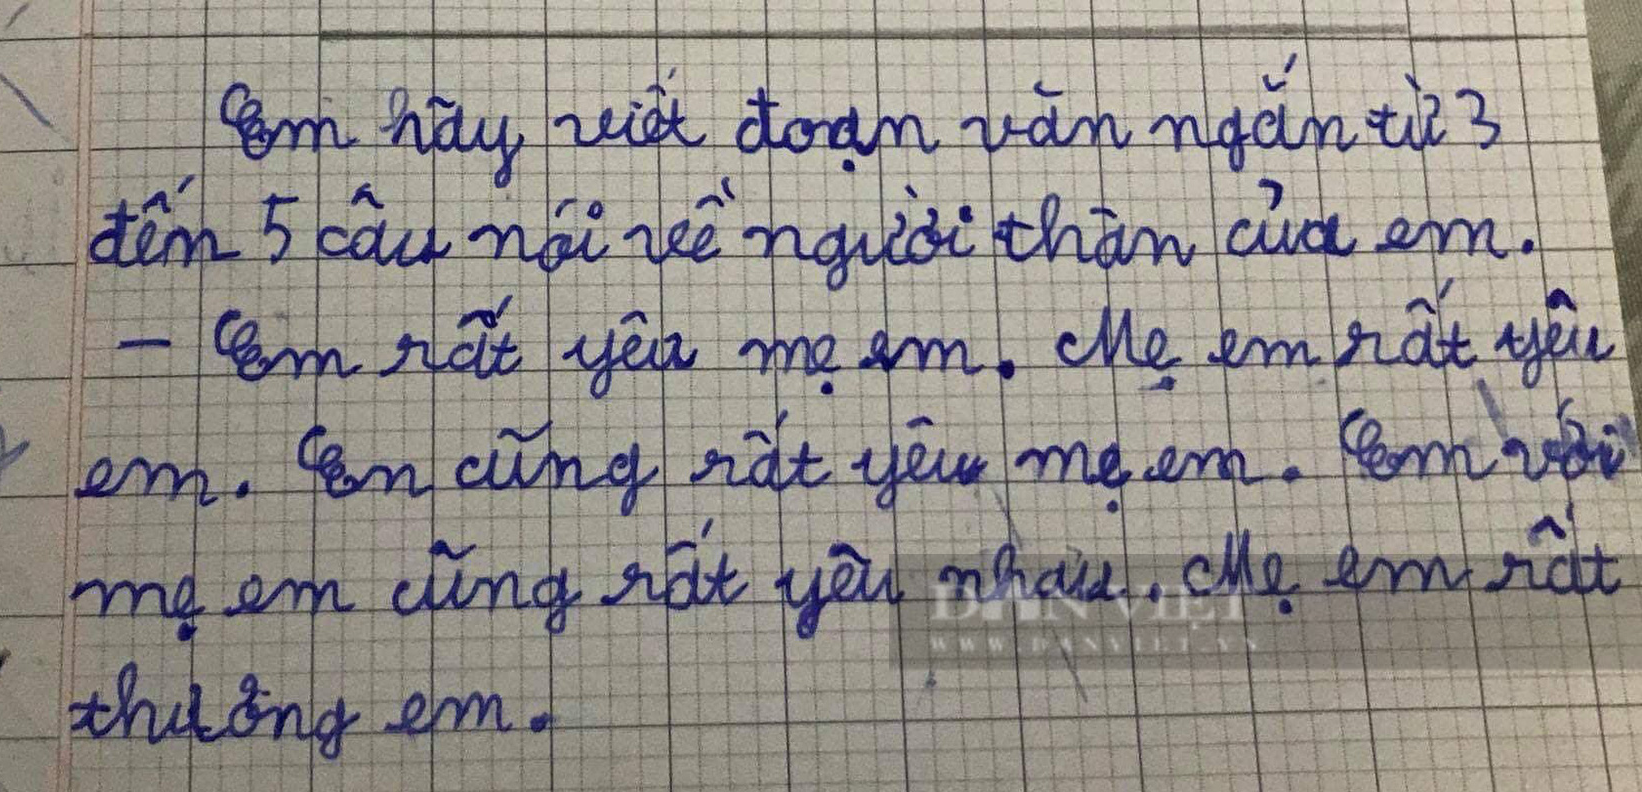 Em hãy viết đoạn văn ngắn từ 3
đến 5 câu nói về người thân của em.
- Em rất yêu mẹ em. Mẹ em rất yêu
em. Em cũng rất yêu mẹ em. Em với
mẹ em cũng rất yêu nhau. Mẹ em rất
thương em.
DÂN VIỆT
WWW.DANVIET.VN